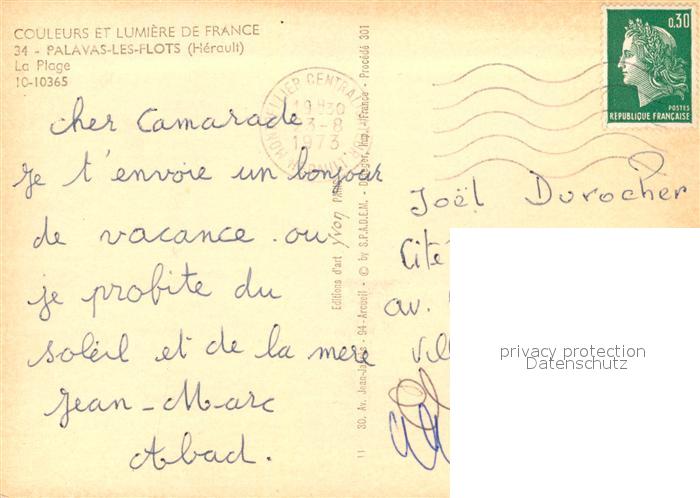 COULEURS ET LUMIÈRE DE FRANCE
34 - PALAVAS-LES-FLOTS (Hérault)
La Plage
10-10365
cher Camarade
je t'envoie un bonjour
de vacance ou
je probite du
soleil et de la mere
Jean-Marc
Abad.
MONTPELLIER CENTRAL
19H30
23-8
1973
HERAULT
Editions d'art yvon PARIS
30. Av. Jean-Jaurès - 94-Arcueil - © by S.P.A.D.E.M. - Imp. - France - Procédé 301
11
0,30
POSTES
REPUBLIQUE FRANÇAISE
Joël Durocher
Cité
av.
privacy protection
Datenschutz